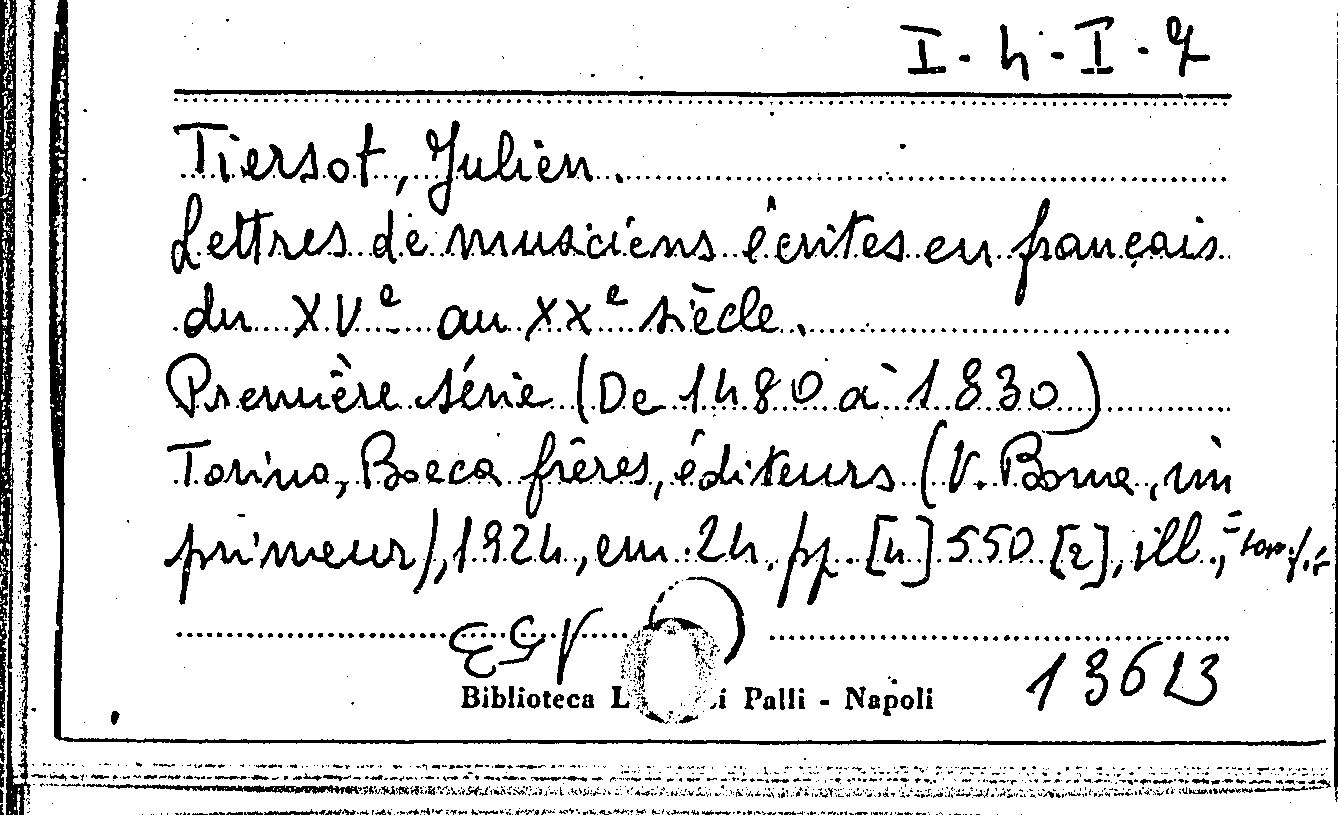 I-4-I-7
Tiersot, Julien.
Lettres de musiciens écrites en français
du XVe au XXe siècle.
Première série (De 1480 à 1830)
Torino, Bocca frères, éditeurs (V. Bona, im
primeur), 1924, cm. 24, pp. [4] 550 [2], ill.,
Biblioteca L i Palli - Napoli
13613